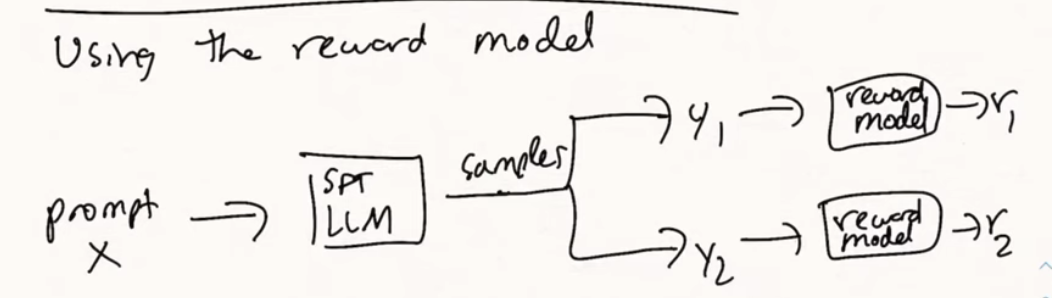 Using the reward model
prompt
X
SPT
LLM
samples
y1
reward
model
r1
y2
reward
model
r2